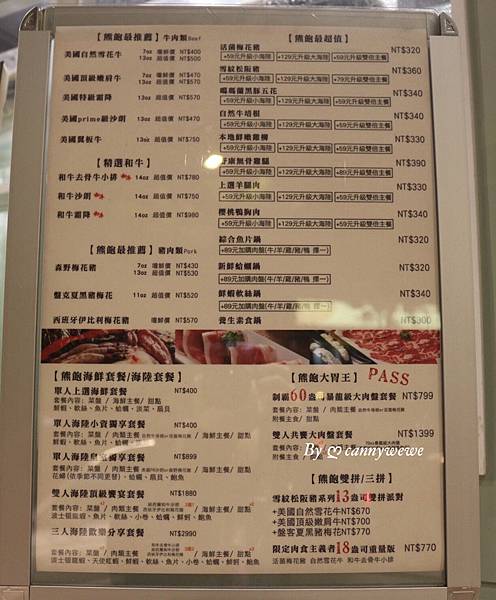 【熊飽最推薦】牛肉類Beef
美國自然雪花牛 7oz 嚐鮮價 NT$400
13oz 超值價 NT$500
美國頂級嫩肩牛 7oz 嚐鮮價 NT$470
13oz 超值價 NT$570
美國特級霜降 13oz 超值價 NT$570
美國prime級沙朗 7oz 嚐鮮價 NT$470
13oz 超值價 NT$670
美國翼板牛 13oz 超值價 NT$750
【精選和牛】
和牛去骨牛小排 14oz 超值價 NT$780
和牛沙朗 14oz 超值價 NT$750
和牛霜降 14oz 超值價 NT$980
【熊飽最推薦】豬肉類Pork
森野梅花豬 7oz 嚐鮮價 NT$430
13oz 超值價 NT$530
盤克夏黑豬梅花 11oz 超值價 NT$520
西班牙伊比利梅花豬 嚐鮮價 NT$570
【熊飽最超值】
活菌梅花豬 NT$320
+59元升級小海陸 +129元升級大海陸 +59元升級雙倍主餐
雪紋松阪豬 NT$360
+59元升級小海陸 +129元升級大海陸 +79元升級雙倍主餐
噶瑪蘭黑豚五花 NT$340
+59元升級小海陸 +129元升級大海陸 +59元升級雙倍主餐
自然牛培根 NT$340
+59元升級小海陸 +129元升級大海陸 +59元升級雙倍主餐
本地鮮嫩雞柳 NT$330
+59元升級小海陸 +129元升級大海陸 +59元升級雙倍主餐
舒康無骨雞腿 NT$390
+59元升級小海陸 +129元升級大海陸 +89元升級雙倍主餐
上選羊腿肉 NT$330
+59元升級小海陸 +129元升級大海陸 +59元升級雙倍主餐
櫻桃鴨胸肉 NT$340
+59元升級小海陸 +129元升級大海陸 +59元升級雙倍主餐
綜合魚片鍋 NT$320
+89元加購肉盤(牛/羊/雞/豬/鴨 擇一)
新鮮蛤蠣鍋 NT$320
+89元加購肉盤(牛/羊/雞/豬/鴨 擇一)
鮮蝦軟絲鍋 NT$340
+89元加購肉盤(牛/羊/雞/豬/鴨 擇一)
養生素食鍋 NT$300
【熊飽海鮮套餐/海陸套餐】
單人上選海鮮套餐 NT$400
套餐內容：菜盤 / 海鮮主餐/ 甜點
鮮蝦、軟絲、魚片、蛤蠣、淡菜、扇貝
單人海陸小資獨享套餐 NT$400
套餐內容：菜盤 / 肉類主餐 / 海鮮主餐/ 甜點
鮮蝦、軟絲、魚片、蛤蠣
單人海陸皇室獨享套餐
套餐內容：菜盤 / 肉類主餐 / 海鮮主餐/ 甜點
花蟳(依季節不同更替)、鮮蝦、魚片、蛤蠣、扇貝、鮑魚
雙人海陸頂級饗宴套餐 NT$1880
套餐內容：菜盤 / 肉類主餐 / 海鮮主餐/ 甜點
波士頓龍蝦、魚片、軟絲、小卷、蛤蠣、鮮蚵、鮑魚
三人海陸歡樂分享套餐 NT$2990
套餐內容：菜盤 / 肉類主餐 / 海鮮主餐/ 甜點
波士頓龍蝦、天使紅蝦、鮮蝦、魚片、小卷、蛤蠣、鮮蚵、鮑魚
【熊飽大胃王】 PASS
制霸60盎司暴龍級大肉盤套餐 NT$799
套餐內容：菜盤 / 肉類主餐
附餐主食/ 甜點
雙人共饗大肉盤套餐 NT$1399
套餐內容：菜盤 / 肉類主餐
附餐主食/ 甜點
By ♡ cannywewe
【熊飽雙拼/三拼】
雪紋松阪豬系列13盎司雙拼派對
+美國自然雪花牛 NT$670
+美國頂級嫩肩牛NT$700
+盤克夏黑豬梅花NT$770
限定肉食主義者18盎司重量版 NT$770
活菌梅花豬 自然雪花牛 和牛去骨牛小排